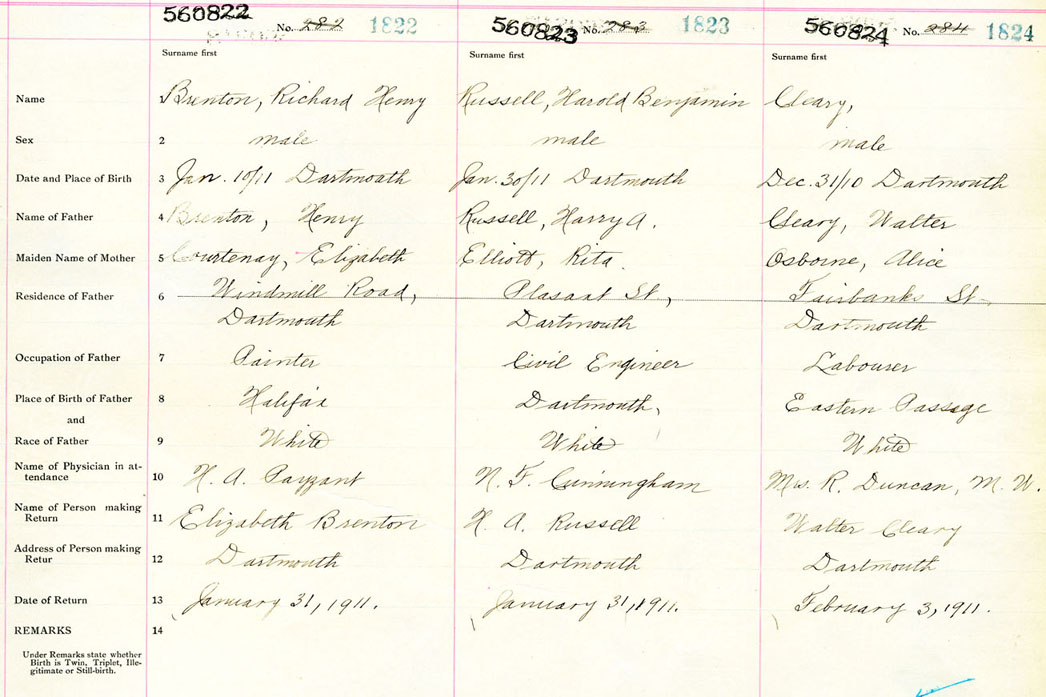 560822 No. 282 1822 560823 No. 283 1823 560824 No. 284 1824
Surname first Surname first Surname first
Name 1 Brenton, Richard Henry Russell, Harold Benjamin Cleary,
Sex 2 male male male
Date and Place of Birth 3 Jan. 10/11 Dartmouth Jan. 30/11 Dartmouth Dec. 31/10 Dartmouth
Name of Father 4 Brenton, Henry Russell, Harry A. Cleary, Walter
Maiden Name of Mother 5 Courtenay, Elizabeth Elliott, Rita. Osborne, Alice
Residence of Father 6 Windmill Road, Plasant St, Fairbanks St
Dartmouth Dartmouth Dartmouth
Occupation of Father 7 Painter Civil Engineer Labourer
Place of Birth of Father 8 Halifax Dartmouth, Eastern Passage
and
Race of Father 9 White White White
Name of Physician in at-
tendance 10 H. A. Payzant N. F. Cunningham Mrs. R. Duncan, M. W.
Name of Person making
Return 11 Elizabeth Brenton H. A. Russell Walter Cleary
Address of Person making
Retur 12 Dartmouth Dartmouth Dartmouth
Date of Return 13 January 31, 1911. January 31, 1911. February 3, 1911.
REMARKS 14
Under Remarks state whether
Birth is Twin, Triplet, Ille-
gitimate or Still-birth.